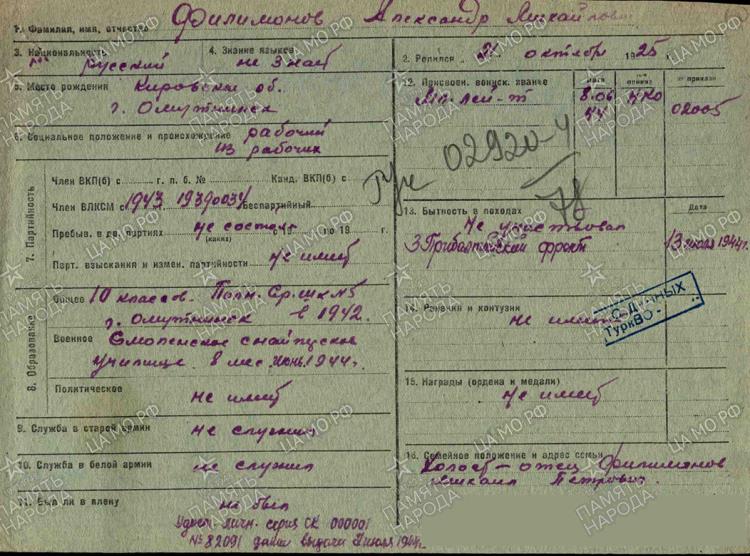 1. Фамилия, имя, отчество Филимонов Александр Михайлович
3. Национальность русский
4. Знание языков не знает
5. Место рождения Кировская об.
г. Омутнинск
6. Социальное положение и происхождение рабочий
из рабочих
7. Партийность
Член ВКП(б) с г. п. б. № Канд. ВКП(б) с
Член ВЛКСМ с 1943 Беспартийный
Пребыв. в др. партиях не состоял с 19 по 19 г.
(каких)
Парт. взыскания и измен. партийности не имеет
8. Образование
Общее 10 классов. Полн. Ср. шк №5
г. Омутнинск в 1942.
Военное Смоленское
училище 8 мес. июнь 1944г.
Политическое не имеет
9. Служба в старой армии не служил
10. Служба в белой армии не служил
11. Был ли в плену не был
Удост. личн. серия СК 00000
№ 82091 дата выдачи июля 1944г.
2. Родился 21 октября 1925 г.
12. Присвоен. воинск. звание
Дата
№ приказа
Мл. лей-т 8.06 НКО 02005
44
02920-4
78
13. Бытность в походах
Дата
Не участвовал
3 Прибалтийский фронт 13 июля 1944г
14. Ранения и контузии
не имеет
ТуркВО
15. Награды (ордена и медали)
не имеет
16. Семейное положение и адрес семьи
Холост - отец Филимонов
Михаил Петрович
ПАМЯТЬ НАРОДА
ЦАМО.РФ